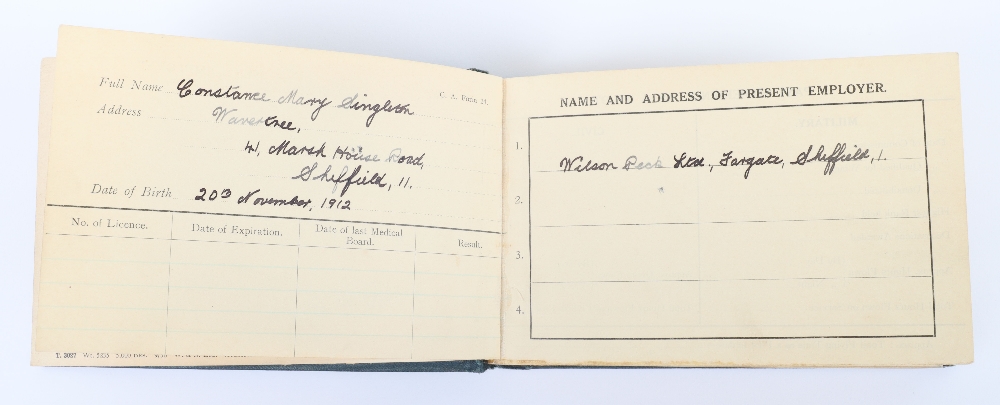 Full Name Constance Mary Singleton
C. A. Form 24.
Address Wavertree,
41, Marsh House Road,
Sheffield, 11.
Date of Birth 20th November, 1912
No. of Licence. Date of Expiration. Date of last Medical Board. Result.
NAME AND ADDRESS OF PRESENT EMPLOYER.
1.
Wilson Peck Ltd., Fargate, Sheffield, 1.
2.
3.
4.